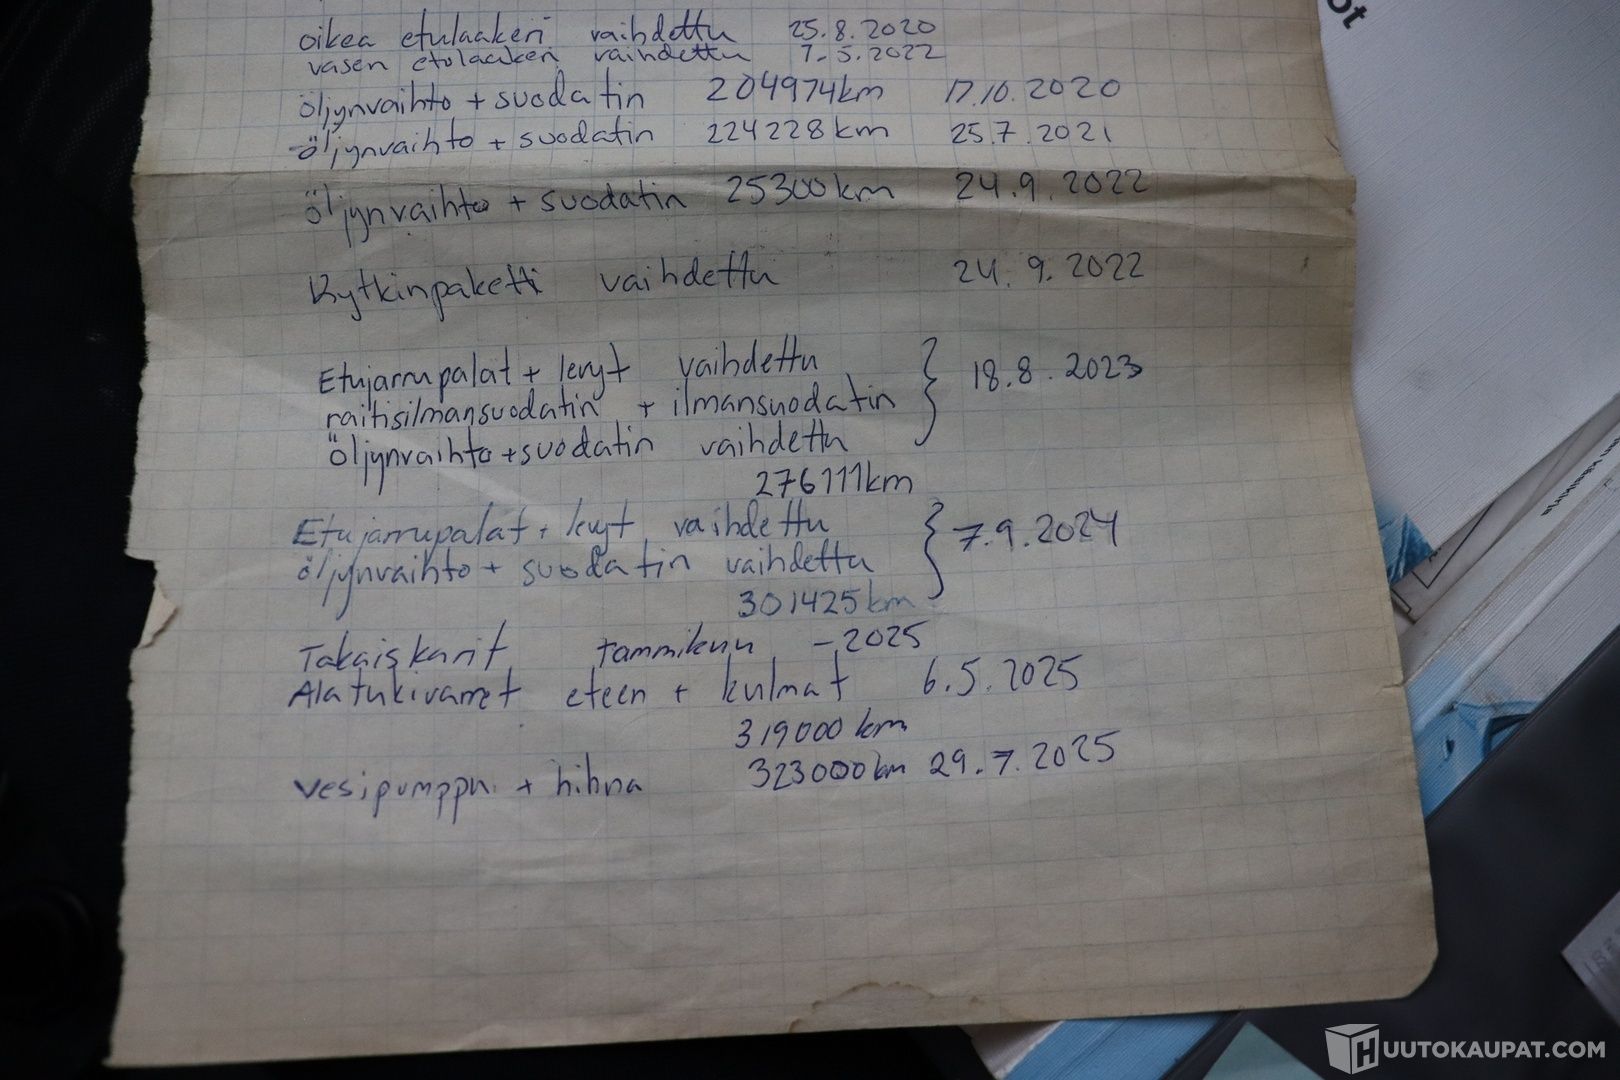 oikea etulaakeri vaihdettu 25.8.2020
vasen etulaakeri vaihdettu 7.5.2022
öljynvaihto + suodatin 204974km 17.10.2020
öljynvaihto + suodatin 224228km 25.7.2021
öljynvaihto + suodatin 25300km 24.9.2022
Kytkinpaketti vaihdettu 24.9.2022
Etujarrupalat + levyt vaihdettu
raitisilmansuodatin + ilmansuodatin } 18.8.2023
Öljynvaihto + suodatin vaihdettu
276111km
Etujarrupalat + levyt vaihdettu } 7.9.2024
öljynvaihto + suodatin vaihdettu
301425km
Takaiskarit tammikuu -2025
Alatukivarret eteen + kulmat 6.5.2025
319000 km
vesipumppu + hihna 323000km 29.7.2025
ot
HUUTOKAUPAT.COM